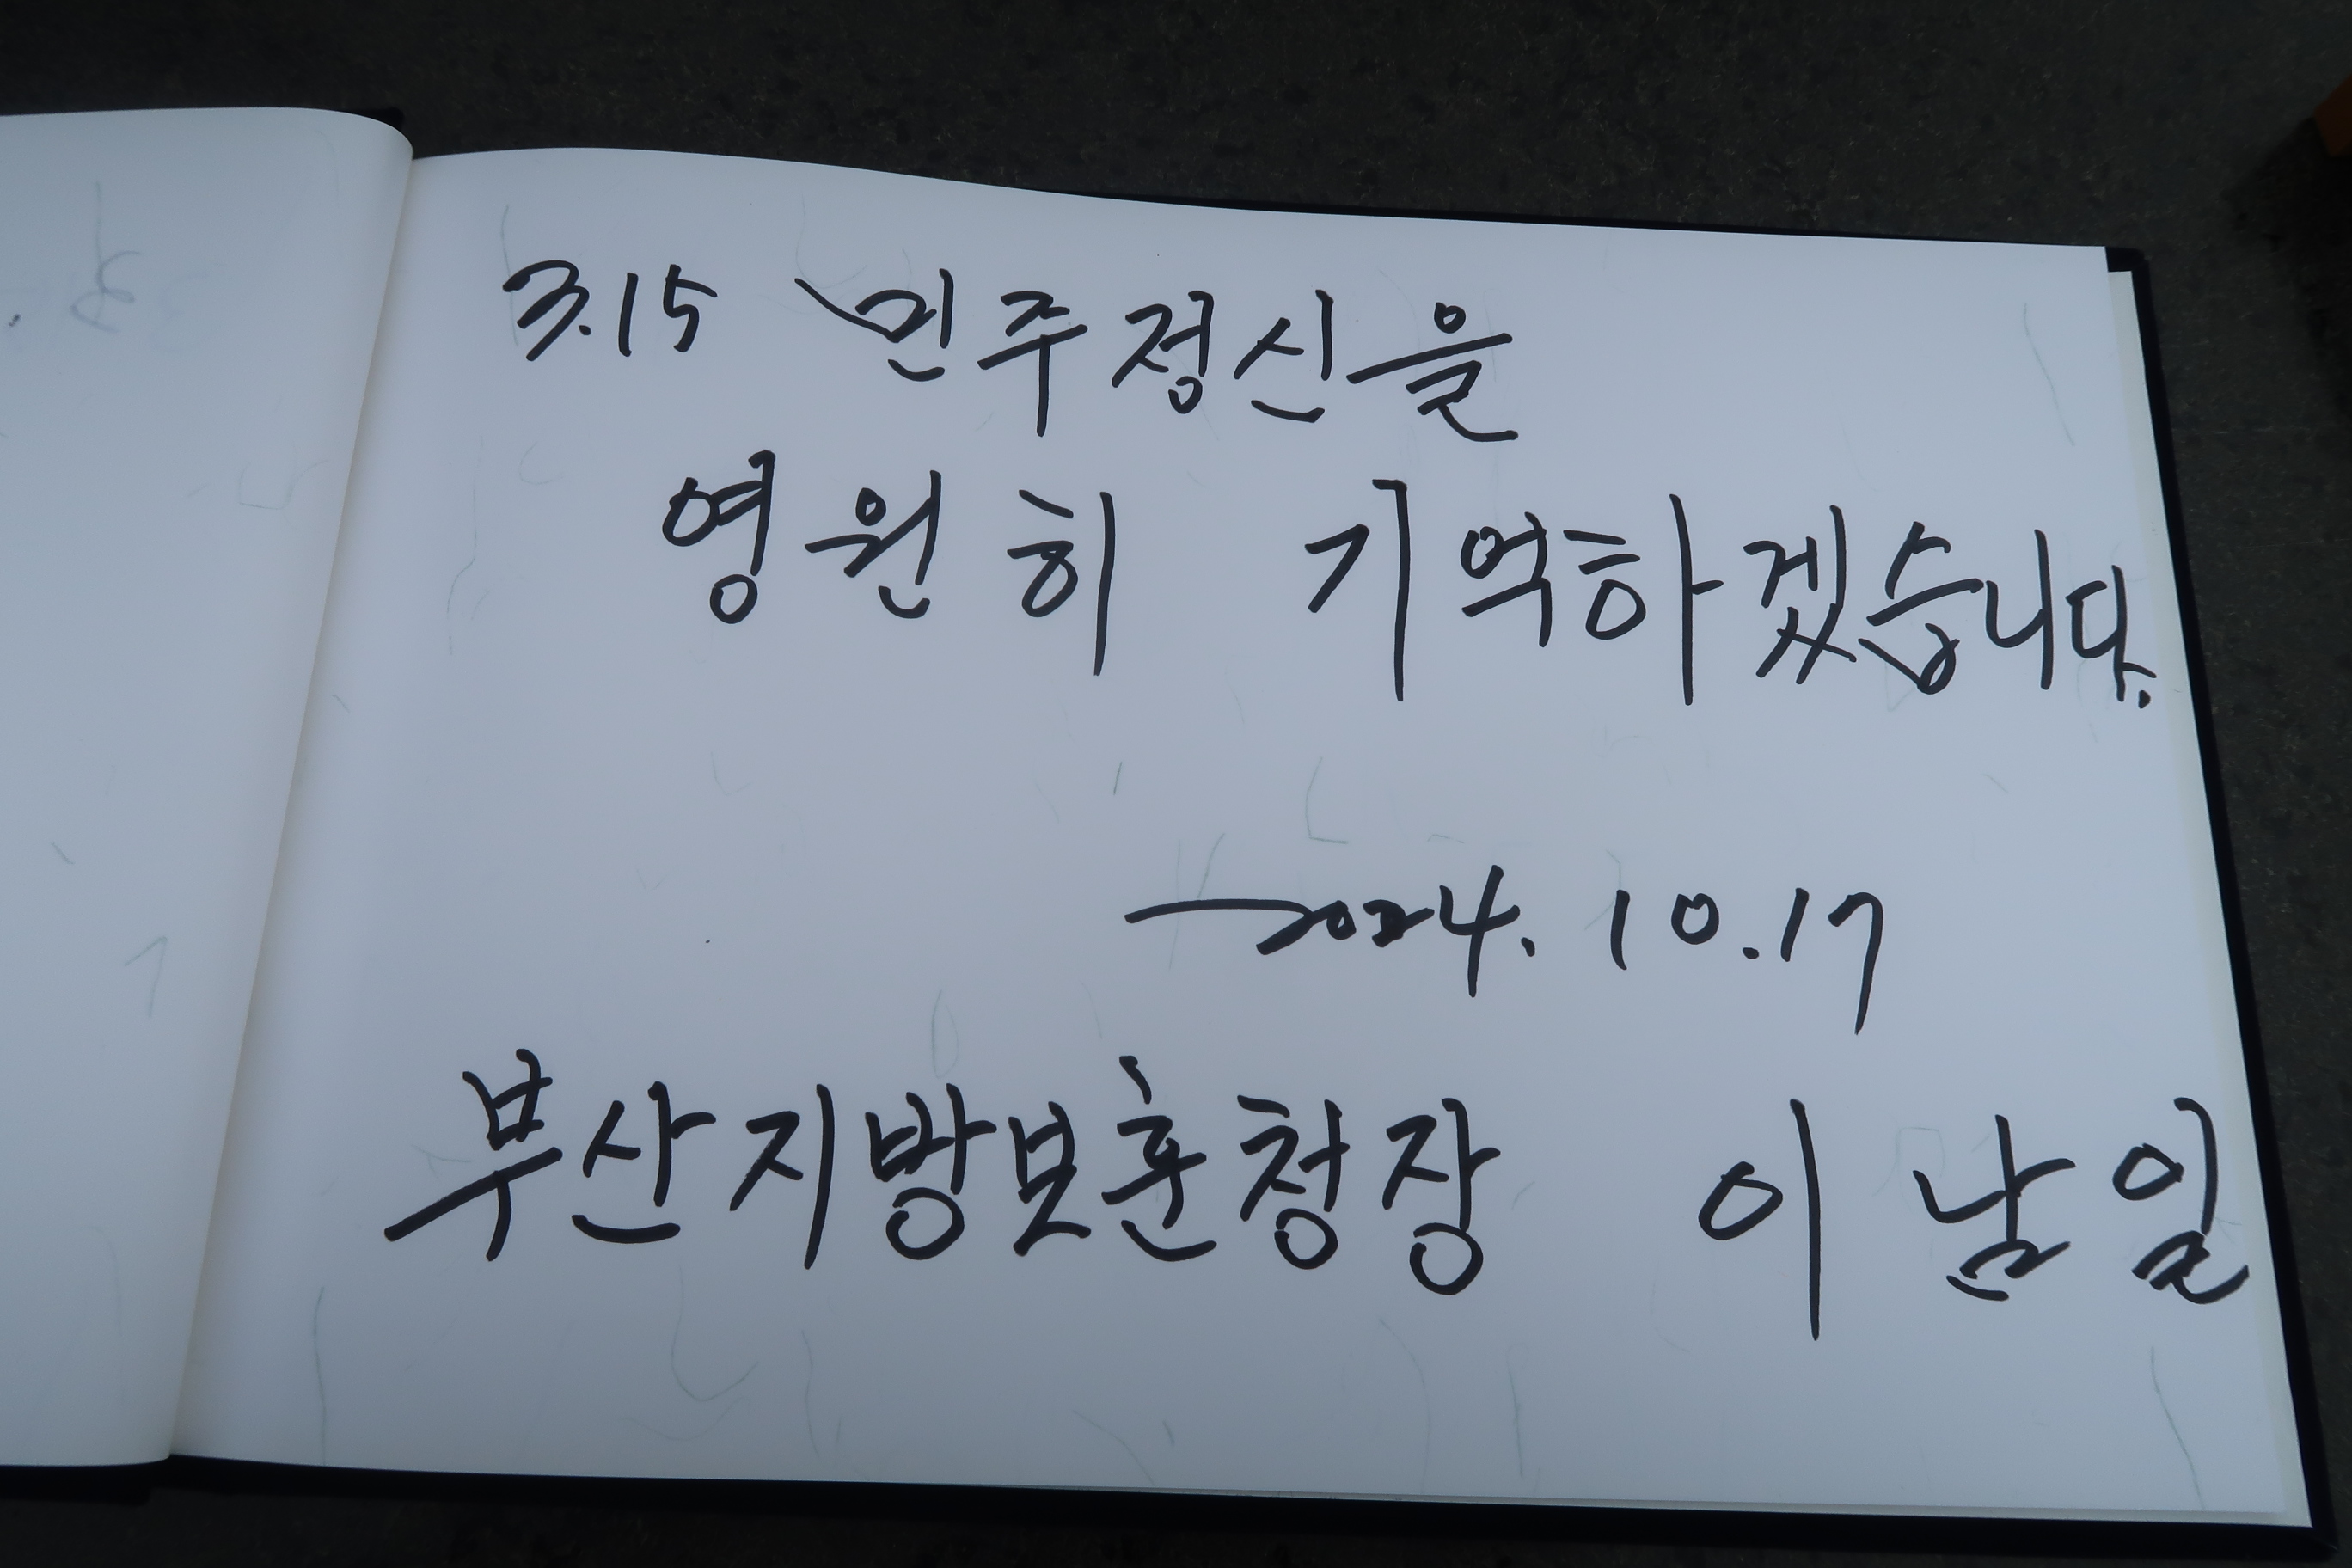 3.15 민주정신을
영원히 기억하겠습니다.
2024. 10.17
부산지방보훈청장 이남일